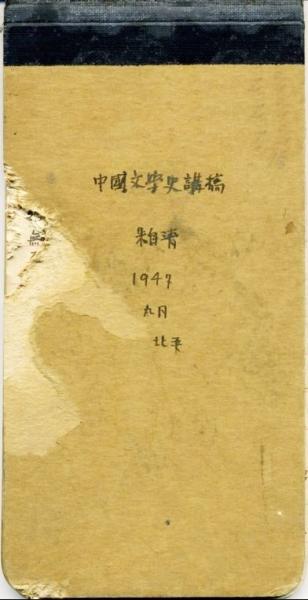 中國文學史講稿
朱自清
1947
九月
北平
無